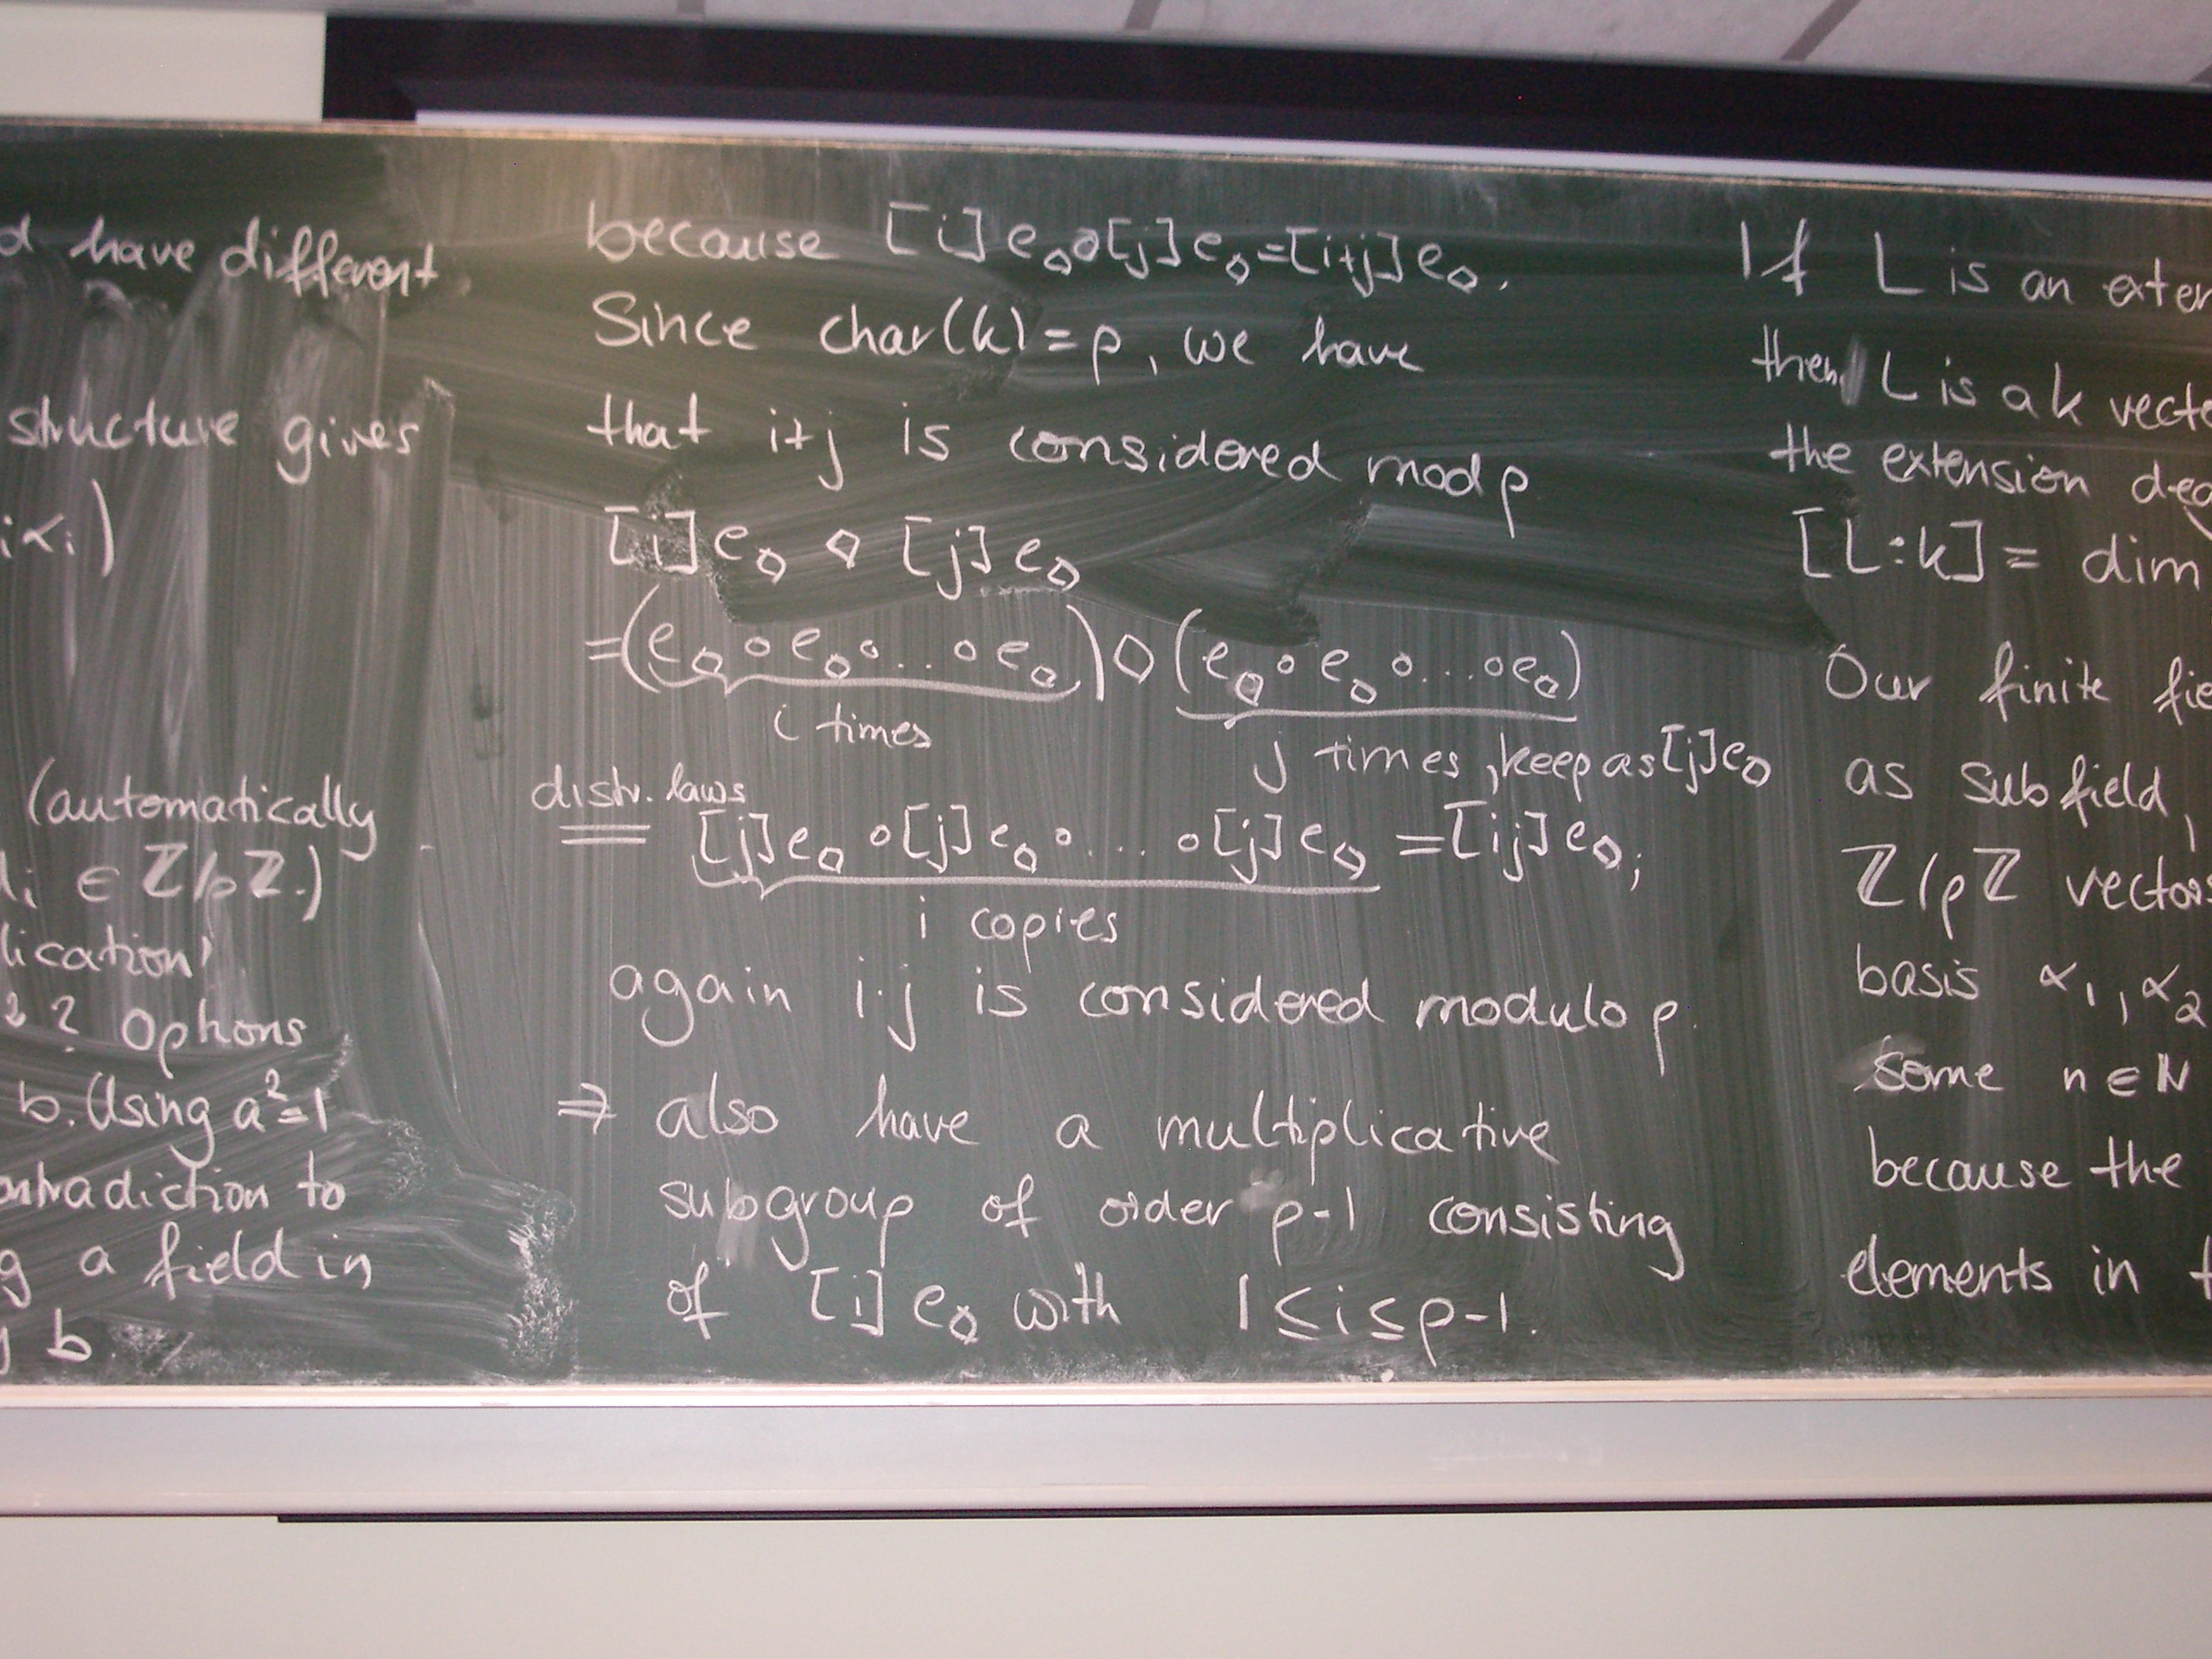 d have different
structure gives
iαi)
(automatically
i ∈ ℤ/pℤ.)
lication
2 ? Options
b. Using a²=1
ontradiction to
g a field in
b
because [i]e◇∘[j]e◇=[i+j]e◇.
Since char(k)=p, we have
that i+j is considered mod p
[i]e◇ ◇ [j]e◇
=(e◇∘e◇∘...∘e◇)◇(e◇∘e◇∘...∘e◇)
i times
j times, keep as [j]e◇
distr. laws
= [j]e◇∘[j]e◇∘....∘[j]e◇ =[ij]e◇;
i copies
again i·j is considered modulo p.
⇒ also have a multiplicative
subgroup of order p-1 consisting
of [i]e◇ with 1≤i≤p-1.
If L is an exten
then L is a k vecto
the extension deg
[L:k]= dim
Our finite fie
as subfield,
ℤ/pℤ vectors
basis α₁,α₂
some n∈ℕ
because the
elements in t